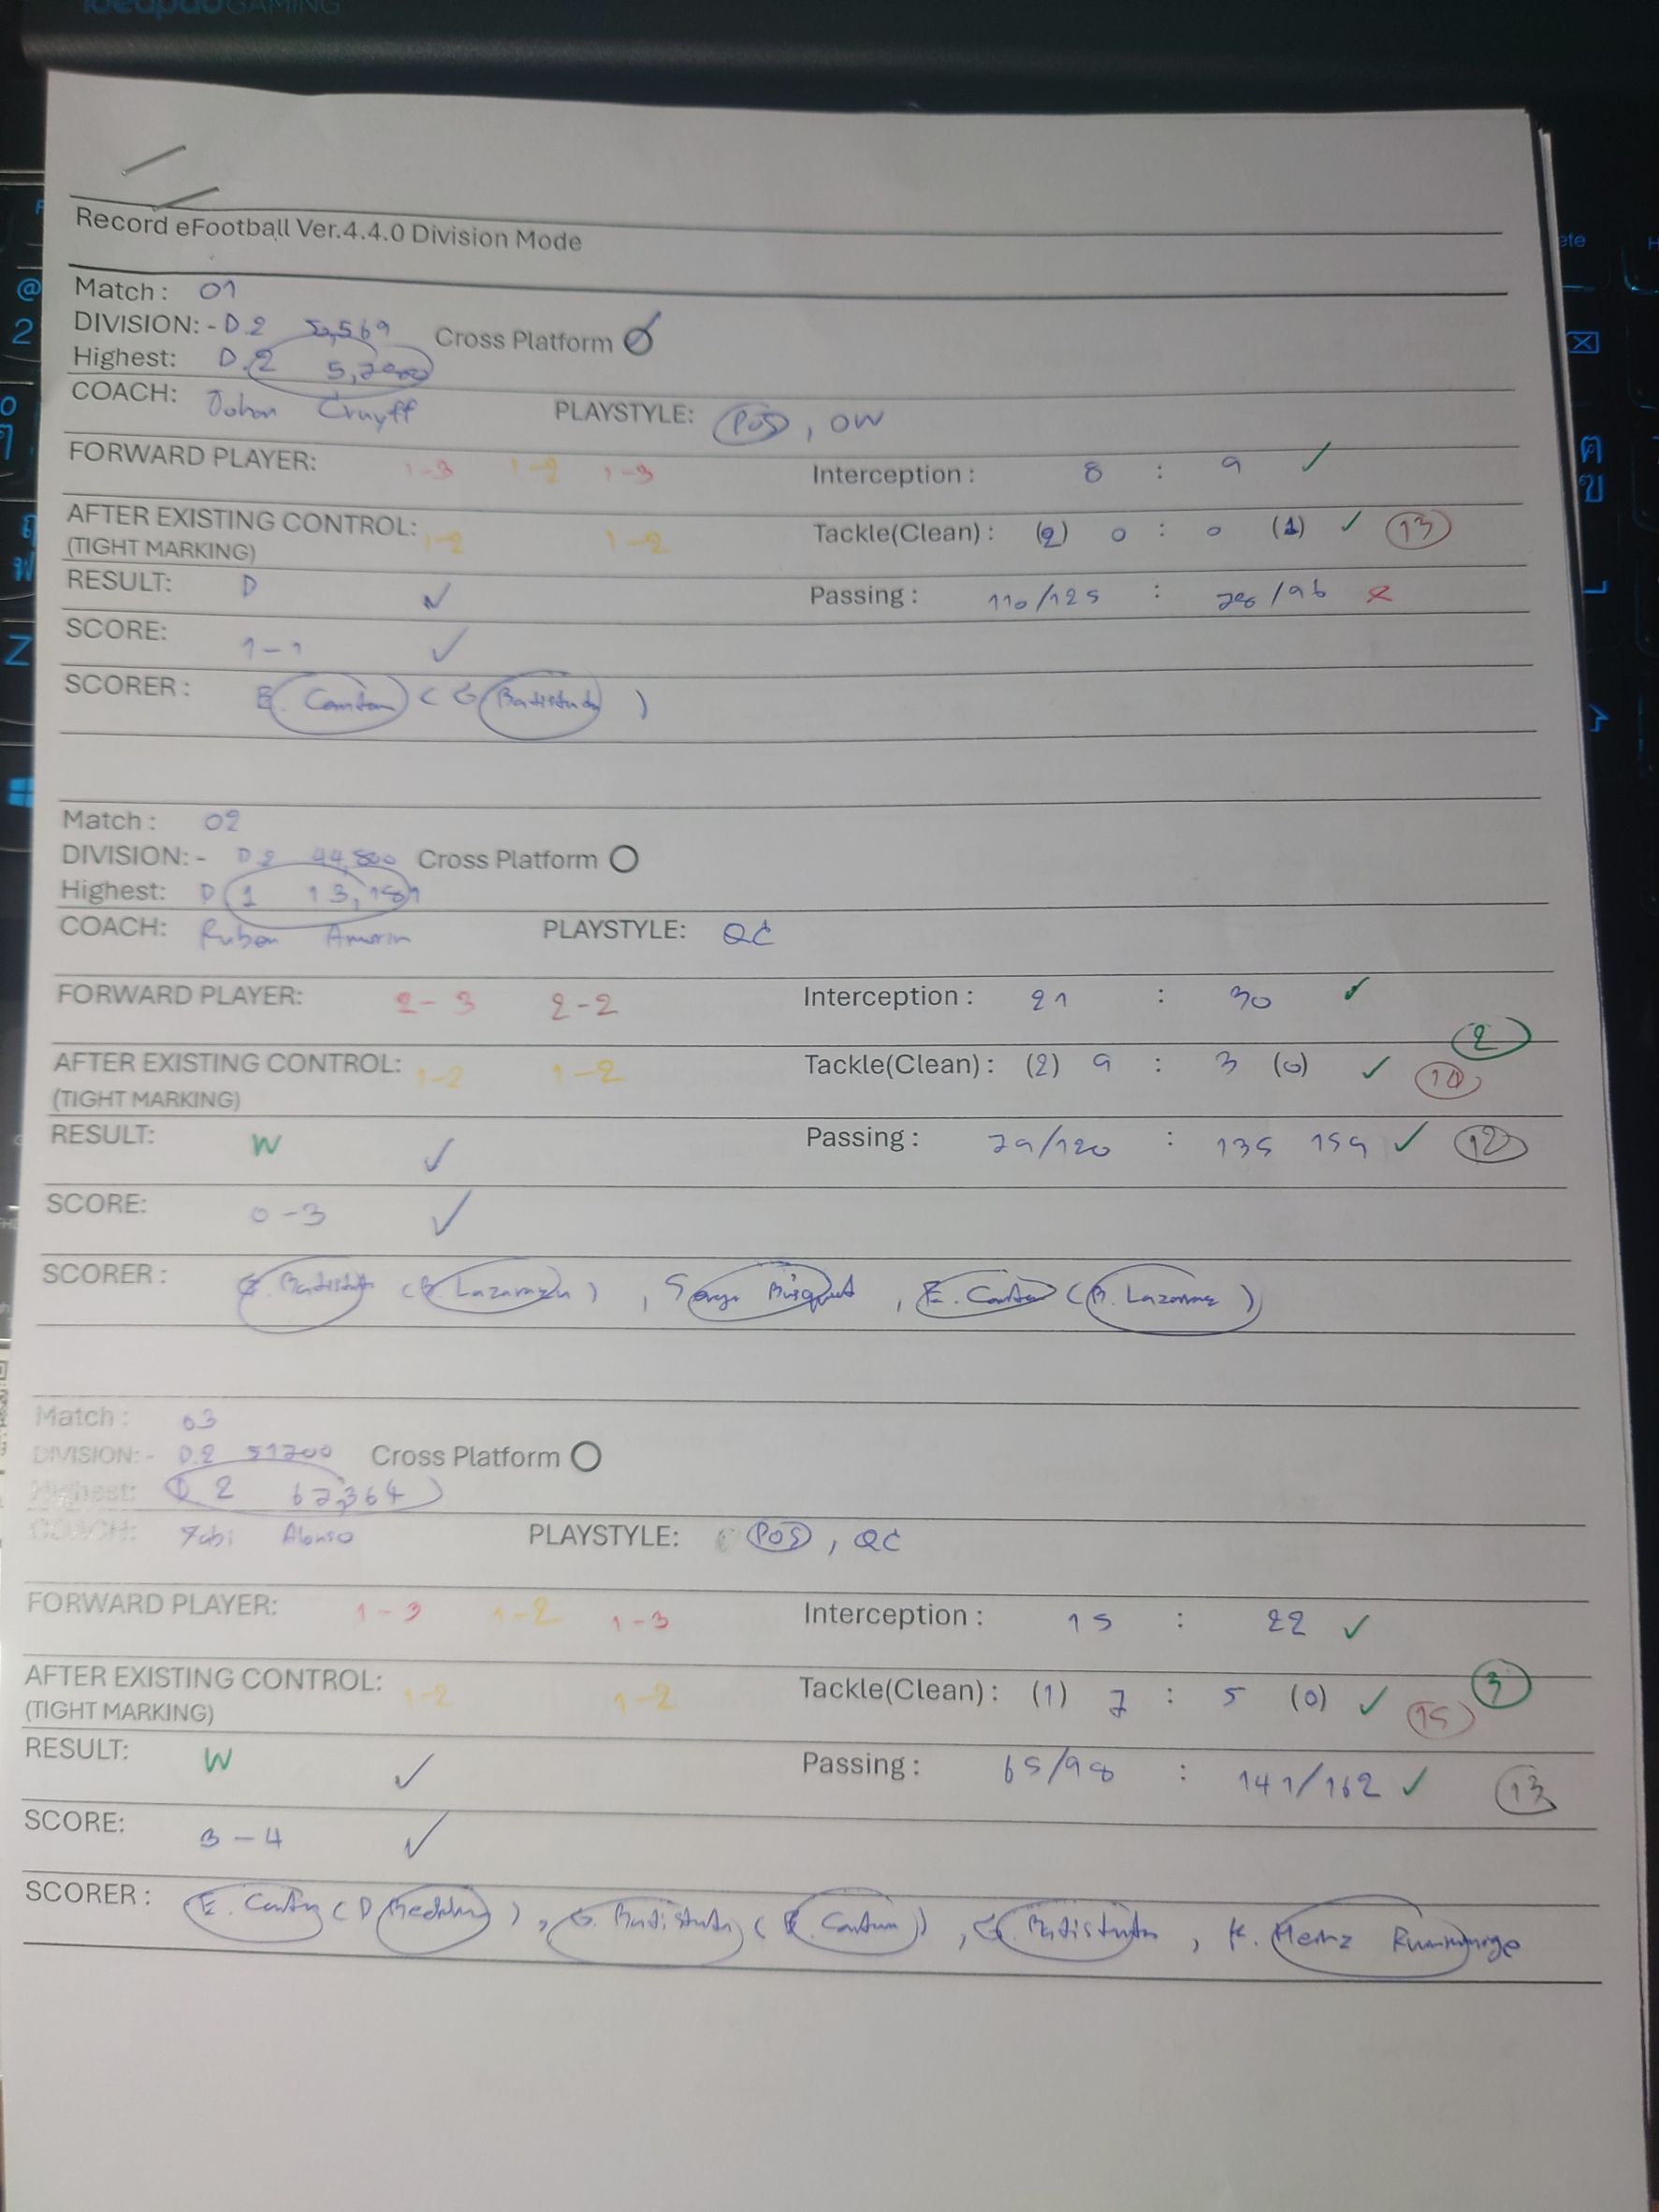 GAMING
Record eFootball Ver.4.4.0 Division Mode
Match : 01
DIVISION: - D.2 5,569 Cross Platform
Highest: D.2
COACH: Johan Cruyff PLAYSTYLE: POS , OW
FORWARD PLAYER: 1-3 1-2 1-3 Interception : 8 : 9 ✓
AFTER EXISTING CONTROL: 1-2 1-2 Tackle(Clean) : (2) 0 : 0 (1) ✓ 13
(TIGHT MARKING)
RESULT: D ✓ Passing : 110/125 : 78/96
SCORE: 1-1 ✓
SCORER : E. Cantona (G. Batistuta)
Match : 02
DIVISION: - D.2 44,800 Cross Platform
Highest: D 1 13,181
COACH: Ruben Amorim PLAYSTYLE: QC
FORWARD PLAYER: 2-3 2-2 Interception : 21 : 30 ✓
2
AFTER EXISTING CONTROL: 1-2 1-2 Tackle(Clean) : (2) 9 : 3 (0) ✓ 10
(TIGHT MARKING)
RESULT: W ✓ Passing : 79/120 : 135 159 ✓ 12
SCORE: 0-3 ✓
SCORER : G. Batistuta (B. Lazarazu) , Sergi Busquet , E. Cantona (B. Lazarazu)
Match : 03
DIVISION: - D.2 51700 Cross Platform
Highest: D 2 67,364
COACH: Xabi Alonso PLAYSTYLE: POS , QC
FORWARD PLAYER: 1-3 1-2 1-3 Interception : 15 : 22 ✓
3
AFTER EXISTING CONTROL: 1-2 1-2 Tackle(Clean) : (1) 7 : 5 (0) ✓ 15
(TIGHT MARKING)
RESULT: W ✓ Passing : 65/98 : 141/162 ✓ 13
SCORE: 3-4 ✓
SCORER : E. Cantona (D Beckham) , G. Batistuta (E. Cantona) , G. Batistuta , K. Heinz Rummenige